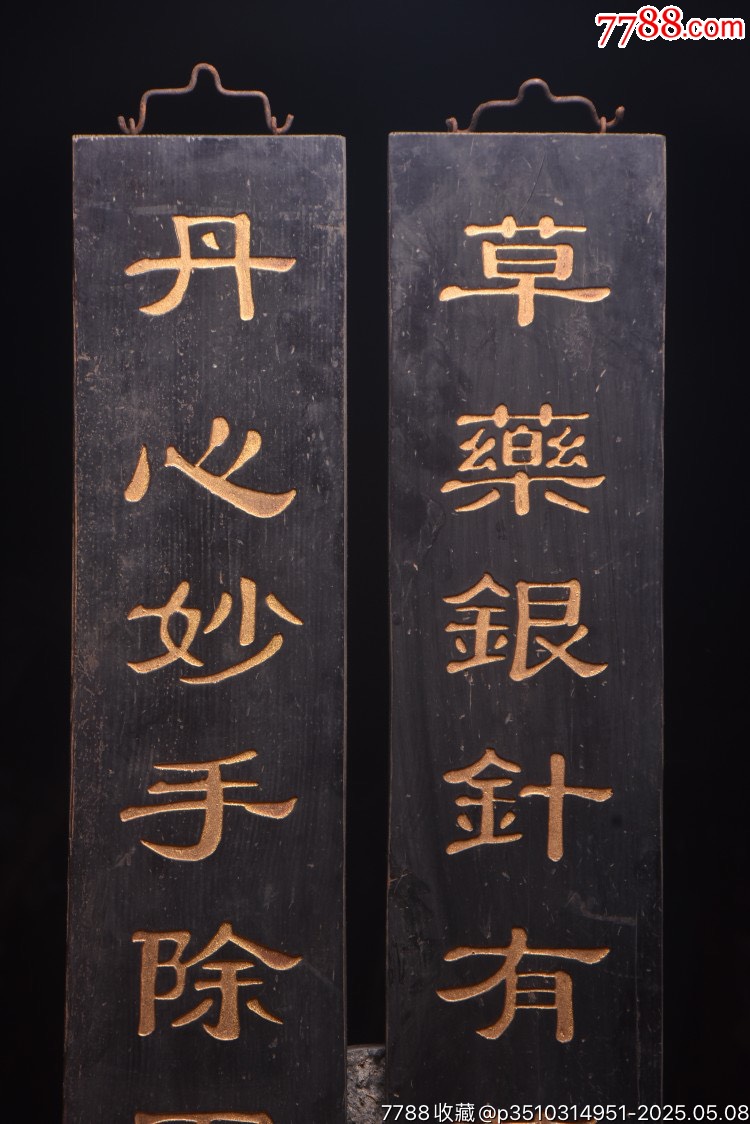 7788.com
草藥銀針有
丹心妙手除
7788收藏@p3510314951-2025.05.08